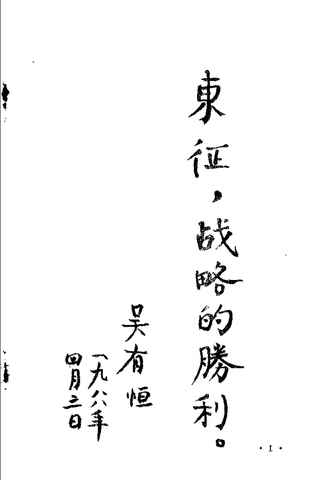 東征，战略的勝利。
吴有恒
一九八八年
四月三日
· 1 ·